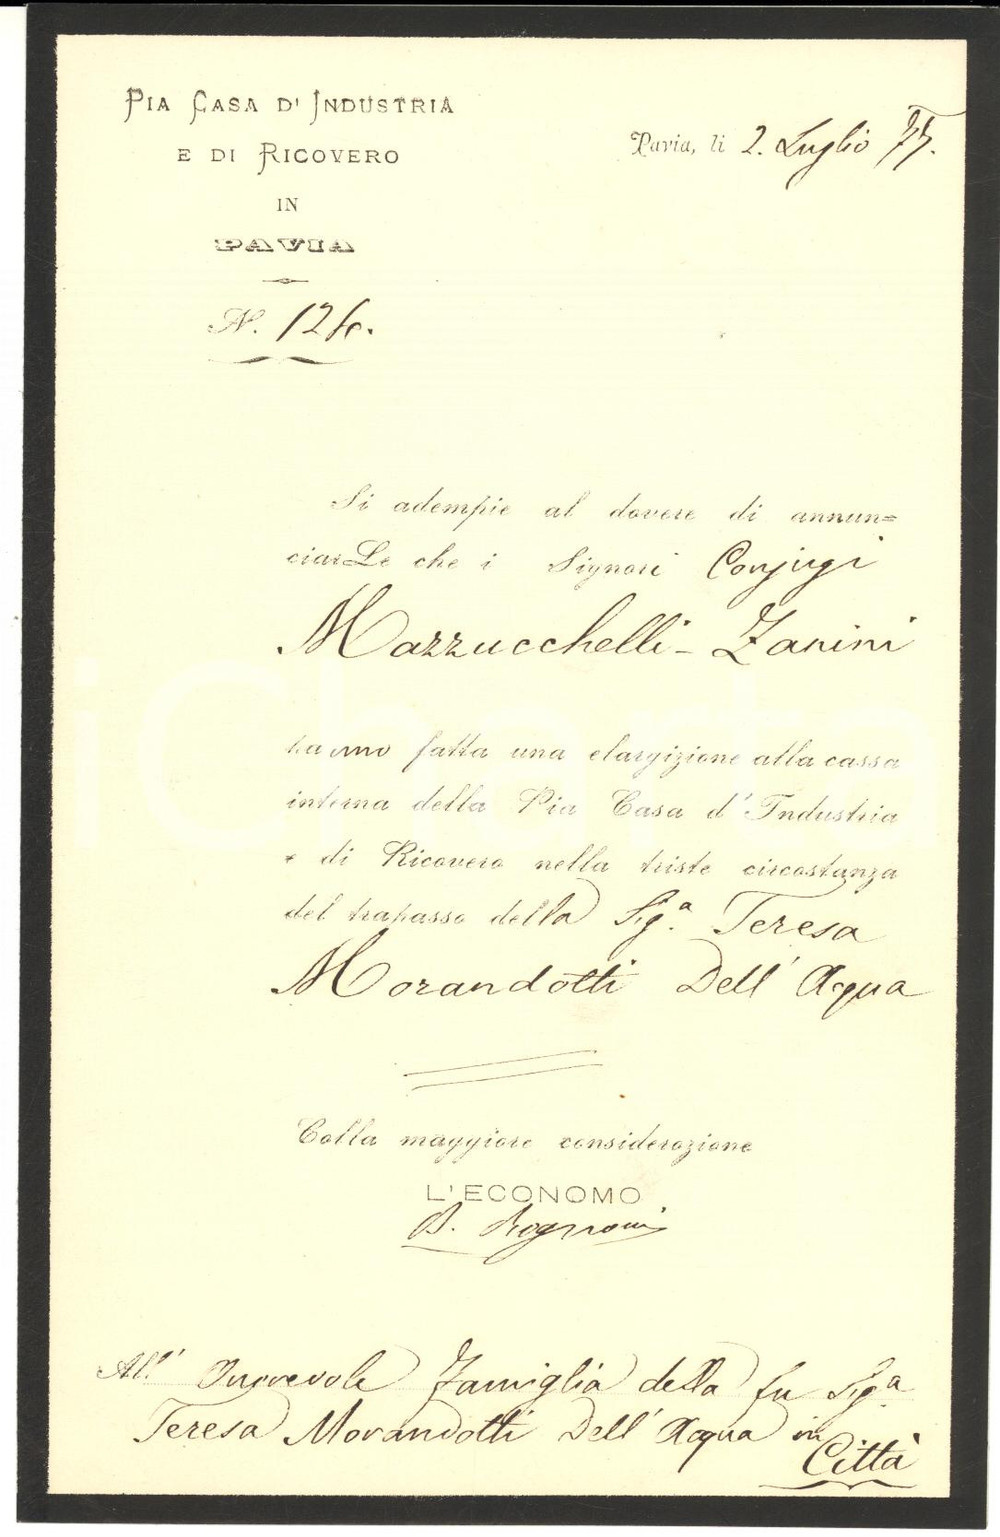 PIA CASA D' INDUSTRIA
E DI RICOVERO
IN
PAVIA
N. 124.
Pavia, li 2. Luglio 77.
Si adempie al dovere di annun=
ciarLe che i Signori Conjugi
Mazzucchelli - Zanini
hanno fatta una elargizione alla cassa
interna della Pia Casa d' Industria
e di Ricovero nella triste circostanza
del trapasso della Sig.ª Teresa
Morandotti Dell' Aqua
Colla maggiore considerazione
L' ECONOMO
B. Rognoni
All' Onorevole Famiglia della fu Sig.ª
Teresa Morandotti Dell' Acqua in
Città
iCharta